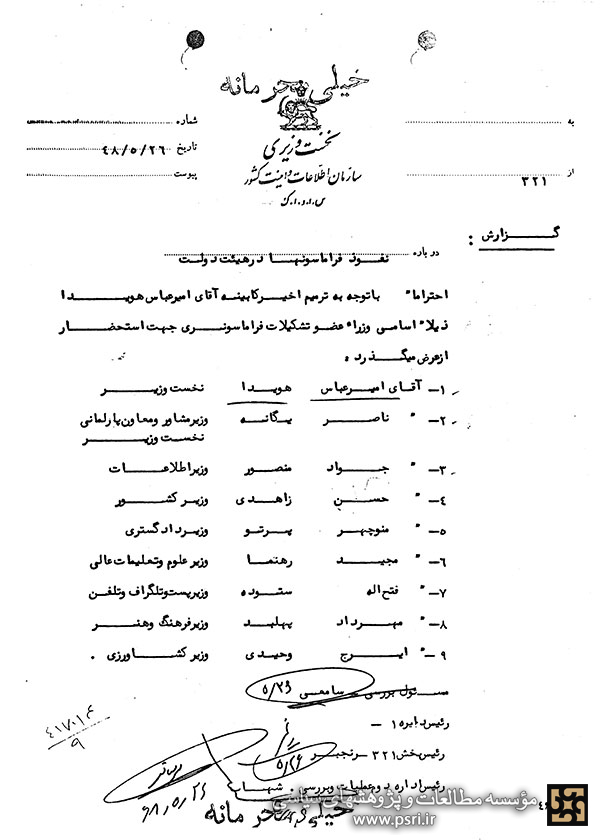 خیلی محرمانه
نخست وزیری
سازمان اطلاعات و امنیت کشور
س.ا.و.ا.ک
به
از ۳۲۱
شماره
تاریخ ۴۸/۵/۲۶
پیوست
گزارش :
درباره نفوذ فراماسونها در هیئت دولت
احتراماً با توجه به ترمیم اخیر کابینه آقای امیرعباس هویدا
ذیلاً اسامی وزراء عضو تشکیلات فراماسونری جهت استحضار
از عرض میگذرد ؛
۱- آقای امیرعباس هویدا نخست وزیر
۲- " ناصر یگانه وزیر مشاور و معاون پارلمانی
نخست وزیر
۳- " جواد منصور وزیر اطلاعات
۴- " حسن زاهدی وزیر کشور
۵- " منوچهر پرتو وزیر دادگستری
۶- " مجید رهنما وزیر علوم و تعلیمات عالی
۷- " فتح اله ستوده وزیر پست و تلگراف و تلفن
۸- " مهرداد پهلبد وزیر فرهنگ و هنر
۹- " ایرج وحیدی وزیر کشاورزی .
مسئول بررسی - سامعی ۵/۲۶
رئیس دایره ۱ -
رئیس بخش ۳۲۱ - رنجبر
۵/۲۶
رئیس اداره دوعملیات و بررسی . شهاب
۴۸/۵/۲۶
۴۱۷۰۱۴
۹
خیلی محرمانه
مؤسسه مطالعات و پژوهشهای سیاسی
www.psri.ir